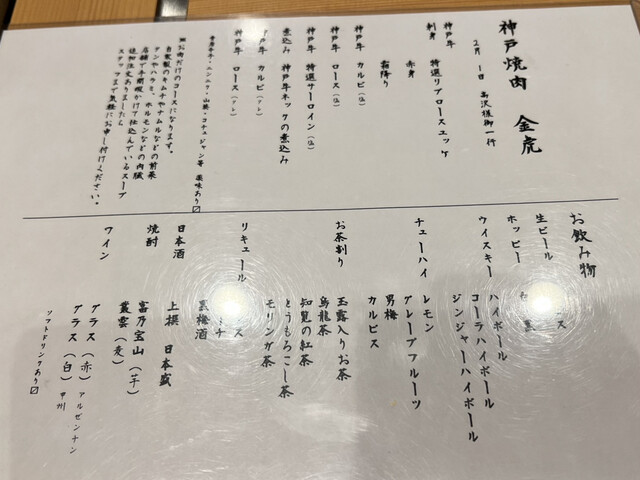 神戸焼肉 金虎
2月1日 高沢様御一行
神戸牛 特選リブロースユッケ
刺身
赤身
霜降り
神戸牛 カルビ(塩)
神戸牛 ロース(塩)
神戸牛 特選サーロイン(塩)
煮込み 神戸牛ネックの煮込み
神戸牛 カルビ(タレ)
神戸牛 ロース(タレ)
・山葵・コチュジャン等 薬味あり〼
※お肉だけのコースになります。
自家製のキムチやナムルなどの前菜
タンやハラミ、ホルモンなどの内臓
店舗で手間暇かけて仕込んでいるスープ
追加注文ありましたら
スタッフまで気軽にお申し付けください。
お飲み物
生ビール
ホッピー
ウイスキー ハイボール
コーラハイボール
ジンジャーハイボール
チューハイ レモン
グレープフルーツ
男梅
カルピス
お茶割り 玉露入りお茶
烏龍茶
知覧の紅茶
とうもろこし茶
モリンガ茶
リキュール
梅酒
日本酒 上撰 日本盛
焼酎 富乃宝山(芋)
叢雲(麦)
ワイン グラス(赤) アルゼンチン
グラス(白) 甲州
ソフトドリンクあり〼